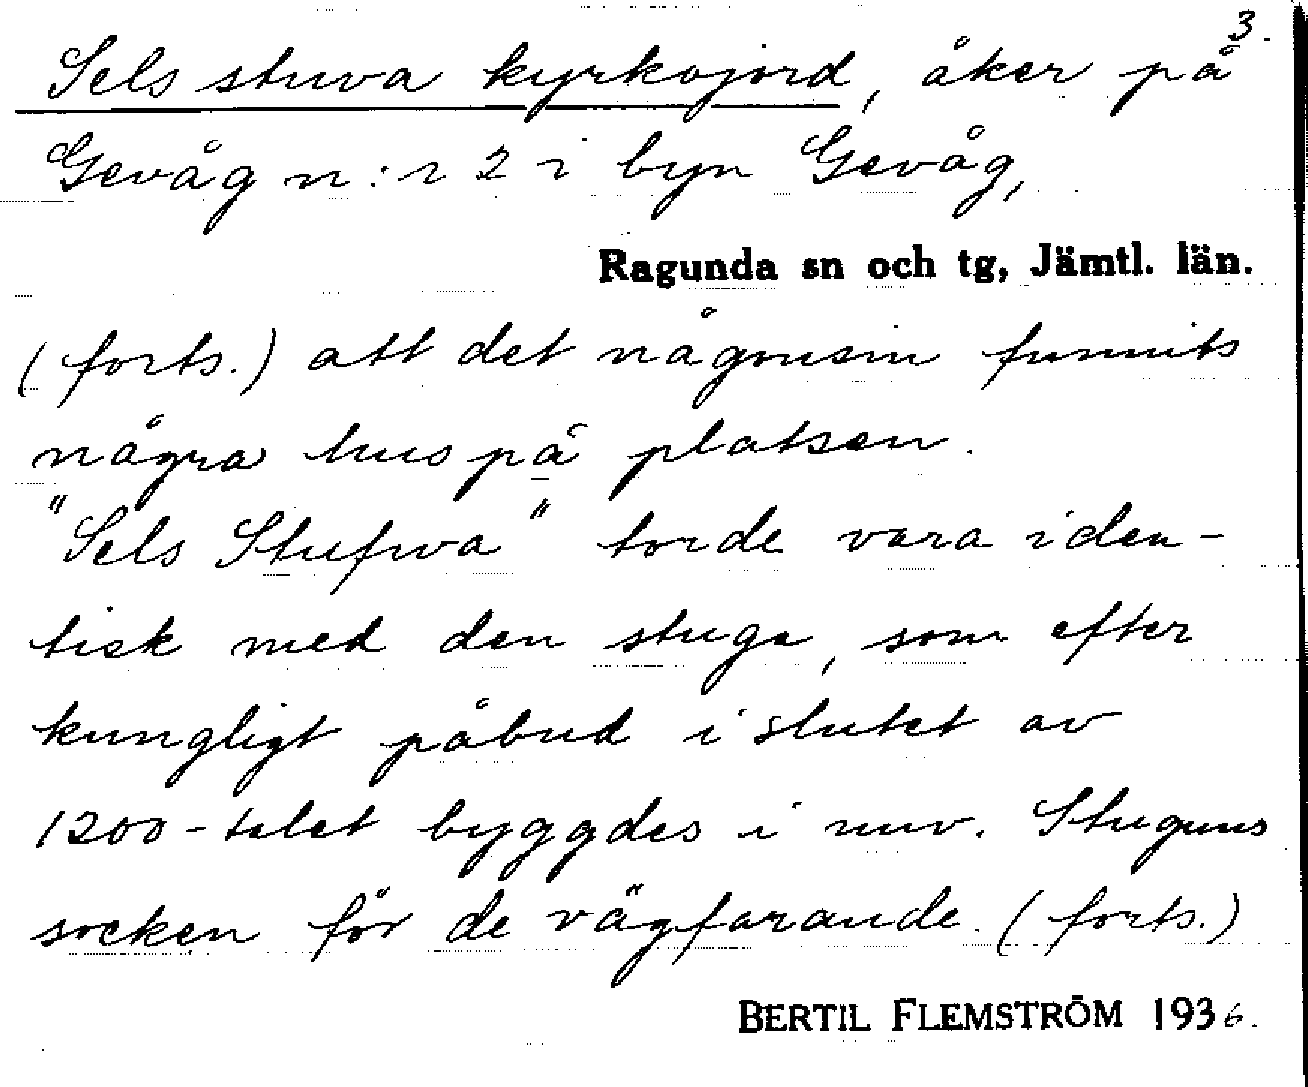 3.
Sels stuva kyrkojord, åker på
Gevåg n:r 2 i byn Gevåg,
Ragunda sn och tg, Jämtl. län.
(forts.) att det någonsin funnits
några hus på platsen.
"Sels Stufwa" torde vara iden-
tisk med den stuga, som efter
kungligt påbud i slutet av
1200-talet byggdes i nuv. Stuguns
socken för de vägfarande. (forts.)
BERTIL FLEMSTRÖM 1936.